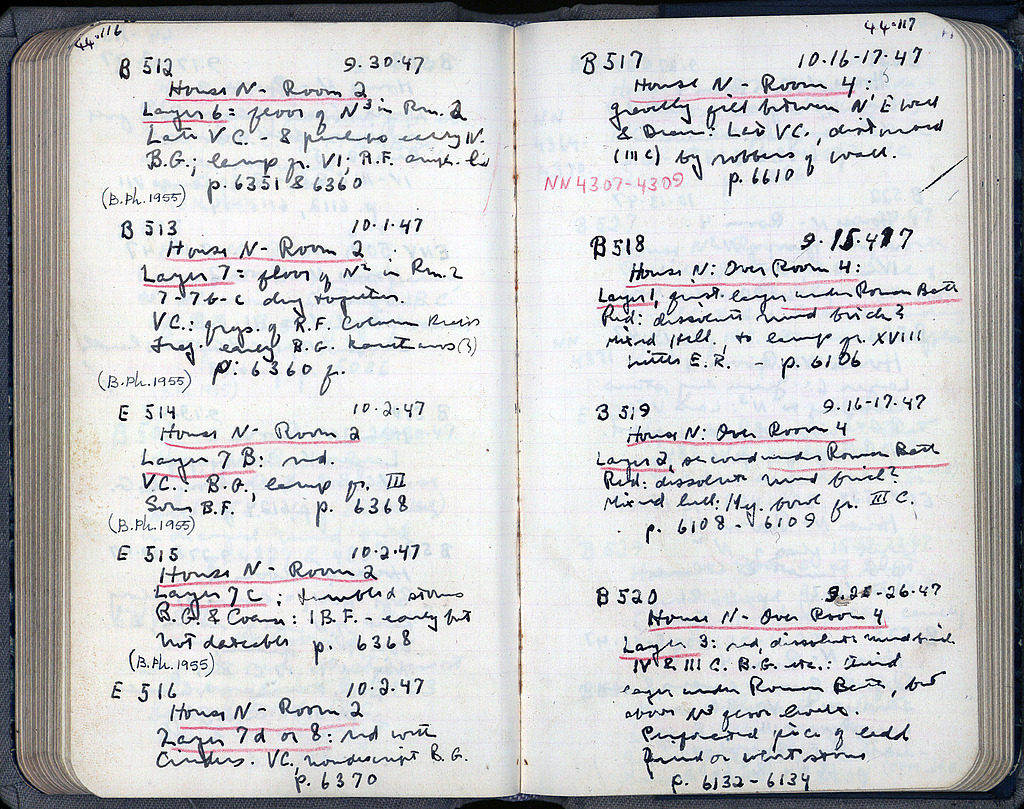 44-116
B 512 9.30.47
House N - Room 2
Layer 6 = floor of N³ in Rm. 2
Late V.C. - 8 early IV.
B.G.; lamp fr. VI; R.F.
p. 6351 & 6360
(B.Ph. 1955)
B 513 10.1.47
House N - Room 2
Layer 7 = floor of N² in Rm. 2
7-7b-c dug together.
V C.: frgs. of R.F. Column Krater
frag. early B.G. Kantharos (?)
p. 6360 f.
(B.Ph. 1955)
E 514 10.2.47
House N - Room 2
Layer 7 B: red.
VC.: B.G., lamp fr. III
Some B.F. p. 6368
(B.Ph. 1955)
E 515 10.2.47
House N - Room 2
Layer 7 C; tumbled stones
B.G. & Coarse: 1 B.F. - early but
not dateable p. 6368
(B.Ph. 1955)
E 516 10.2.47
House N - Room 2
Layer 7d or 8: red with
Cinders. VC, nondescript B.G.
p. 6370
44-117
B 517 10.16-17.47
House N - Room 4:
gravelly fill between N' E wall
& Drain: Late VC. disturbed
(III C) by robbers of wall.
NN4307-4309 p. 6610
B 518 9.15.47
House N: Over Room 4:
Layer 1, first layer under Roman Bath
Red: dissolved mud brick?
Mixed Hell. to lamp fr. XVIII
little E.R. - p. 6106
B 519 9.16-17.47
House N: Over Room 4
Layer 2, second under Roman Bath
Red: dissolved mud brick?
Mixed hell: Meg. bowl fr. III C.
p. 6108 - 6109
B 520 9.25-26-47
House N - Over Room 4
Layer 3: red, dissolved mud brick
IV & III C. B.G. etc.: third
layer under Roman Bath, but
above N³ floor levels.
Perforated piece of lead
found on west stones
p. 6132-6134